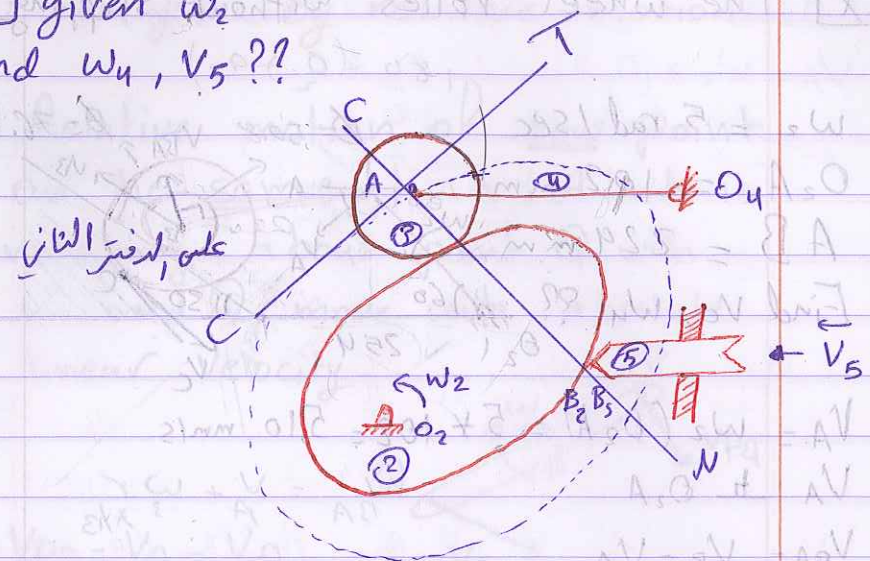 ] given w₂
nd w₄, V₅??
T
C
A
④
O₄
③
على الدفتر الثاني
C
⑤
V₅
w₂
B₂ B₅
O₂
②
N